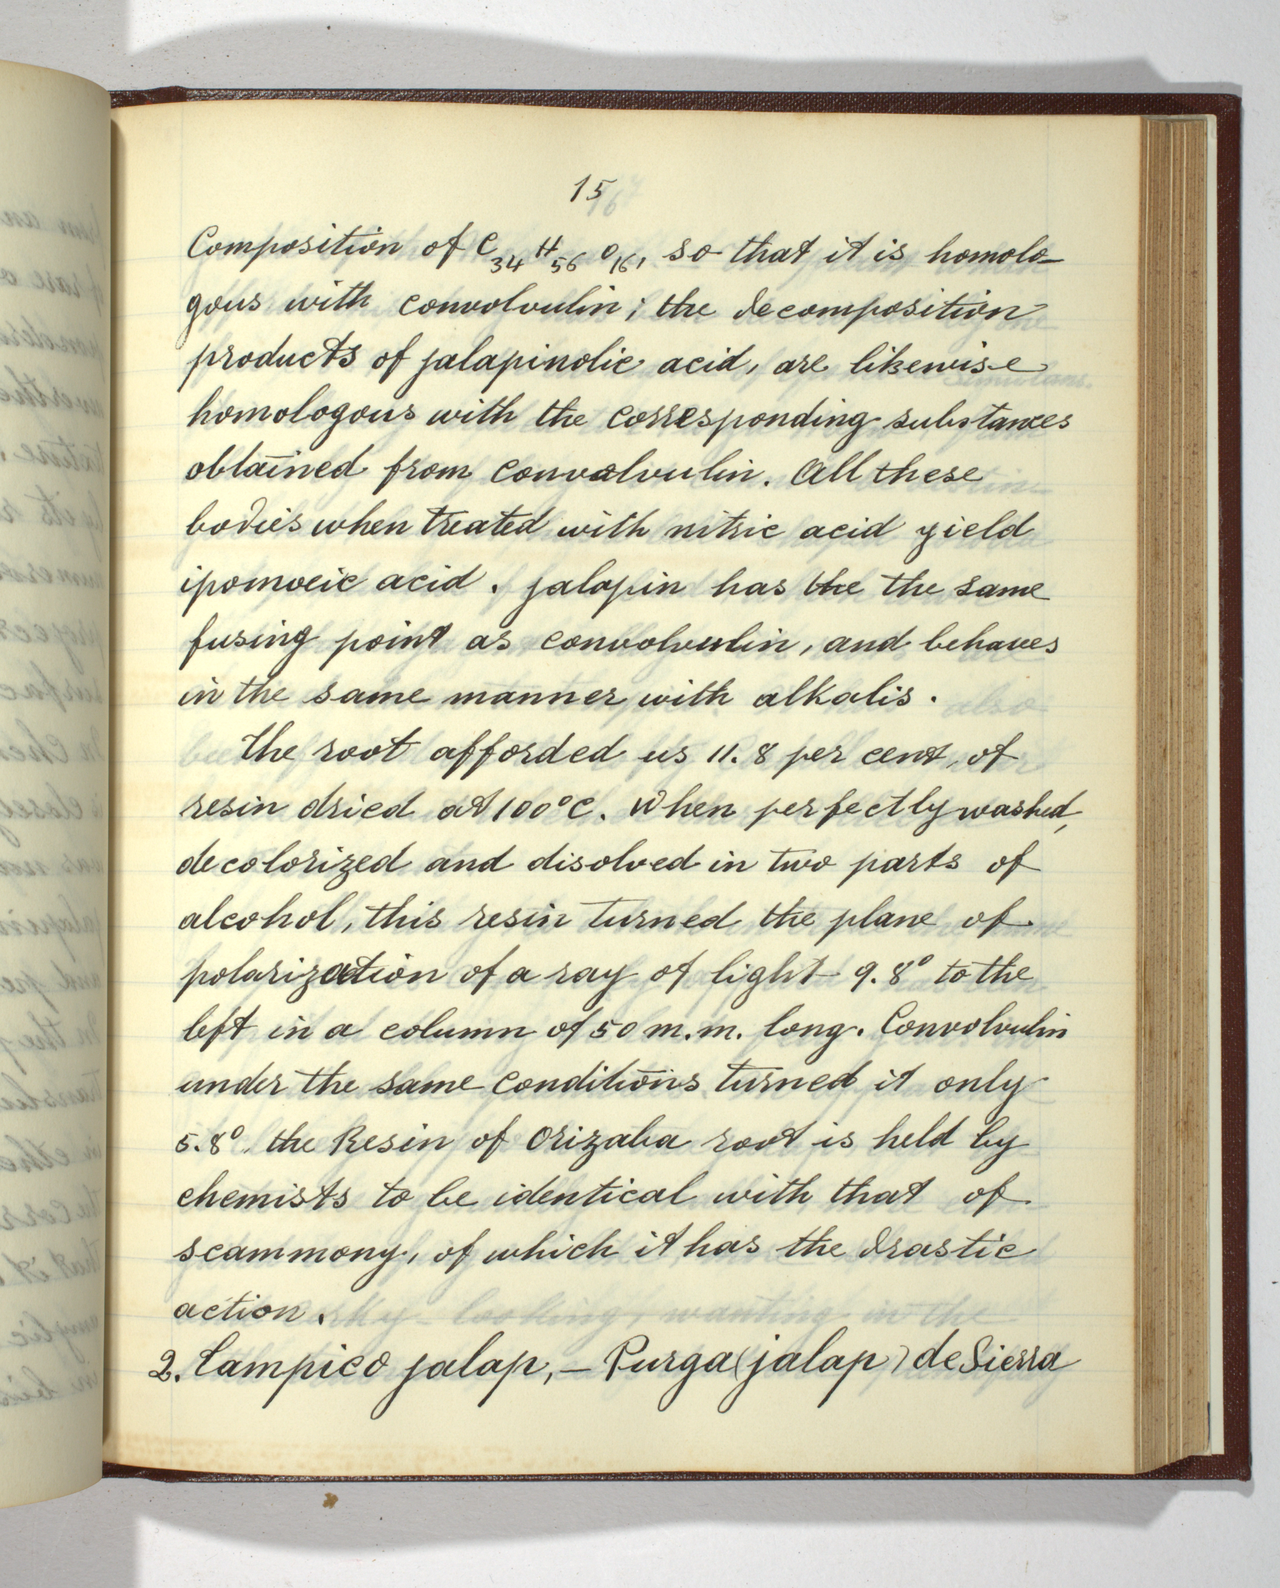 15
Composition of C34 H56 O16, so that it is homolo-
gous with convolvulin; the decomposition
products of jalapinolic acid, are likewise
homologous with the corresponding substances
obtained from convolvulin. All these
bodies when treated with nitric acid yield
ipomoeic acid. Jalapin has the the same
fusing point as convolvulin, and behaves
in the same manner with alkalis.
The root afforded us 11.8 per cent, of
resin dried at 100°C. When perfectly washed,
decolorized and disolved in two parts of
alcohol, this resin turned the plane of
polarization of a ray of light 9.8° to the
left in a column of 50 m.m. long. Convolvulin
under the same conditions turned it only
5.8°. the Resin of Orizaba root is held by
chemists to be identical with that of
scammony, of which it has the drastic
action.
2. Tampico jalap, — Purga (jalap) de Sierra